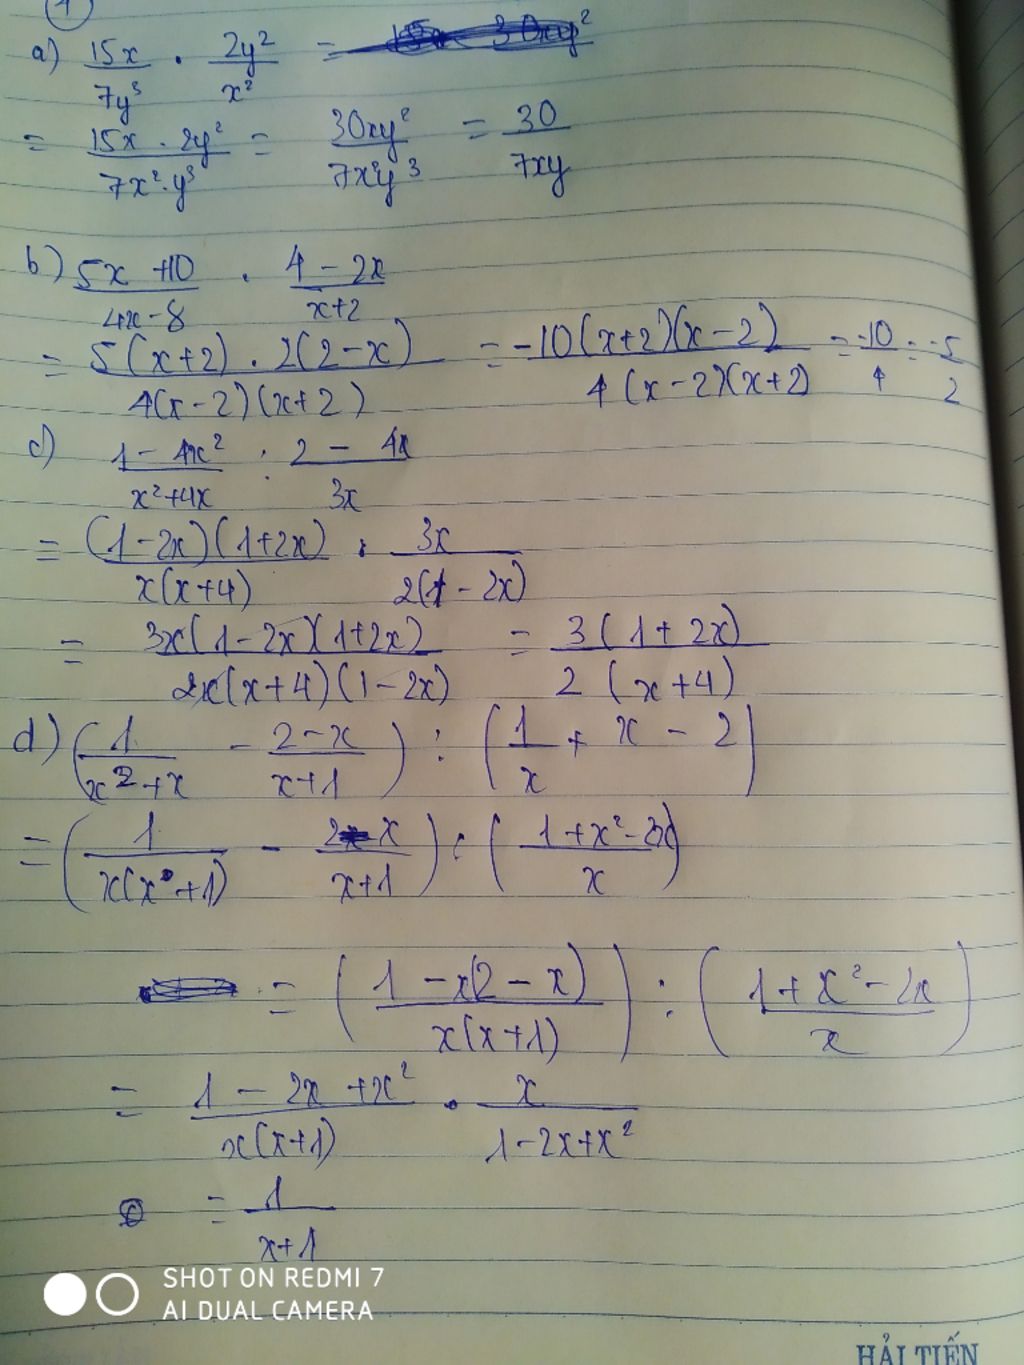 1
a) 15x/7y³ . 2y²/x² =
= 15x . 2y²/7x².y³ = 30xy²/7x²y³ = 30/7xy
b) 5x +10/4x-8 . 4 - 2x/x+2
= 5(x+2) . 2(2-x)/4(x-2)(x+2) = -10(x+2)(x-2)/4(x-2)(x+2) = -10/4 = -5/2
c) 1 - 4x²/x²+4x : 2 - 4x/3x
= (1-2x)(1+2x)/x(x+4) . 3x/2(1-2x)
= 3x(1-2x)(1+2x)/2x(x+4)(1-2x) = 3(1+2x)/2(x+4)
d) (1/x²+x - 2-x/x+1) : (1/x + x - 2)
= (1/x(x+1) - 2-x/x+1) : (1+x²-2x/x)
= (1-x(2-x)/x(x+1)) : (1+x²-2x/x)
= 1 - 2x +x²/x(x+1) . x/1-2x+x²
= 1/x+1
SHOT ON REDMI 7
AI DUAL CAMERA
HẢI TIẾN